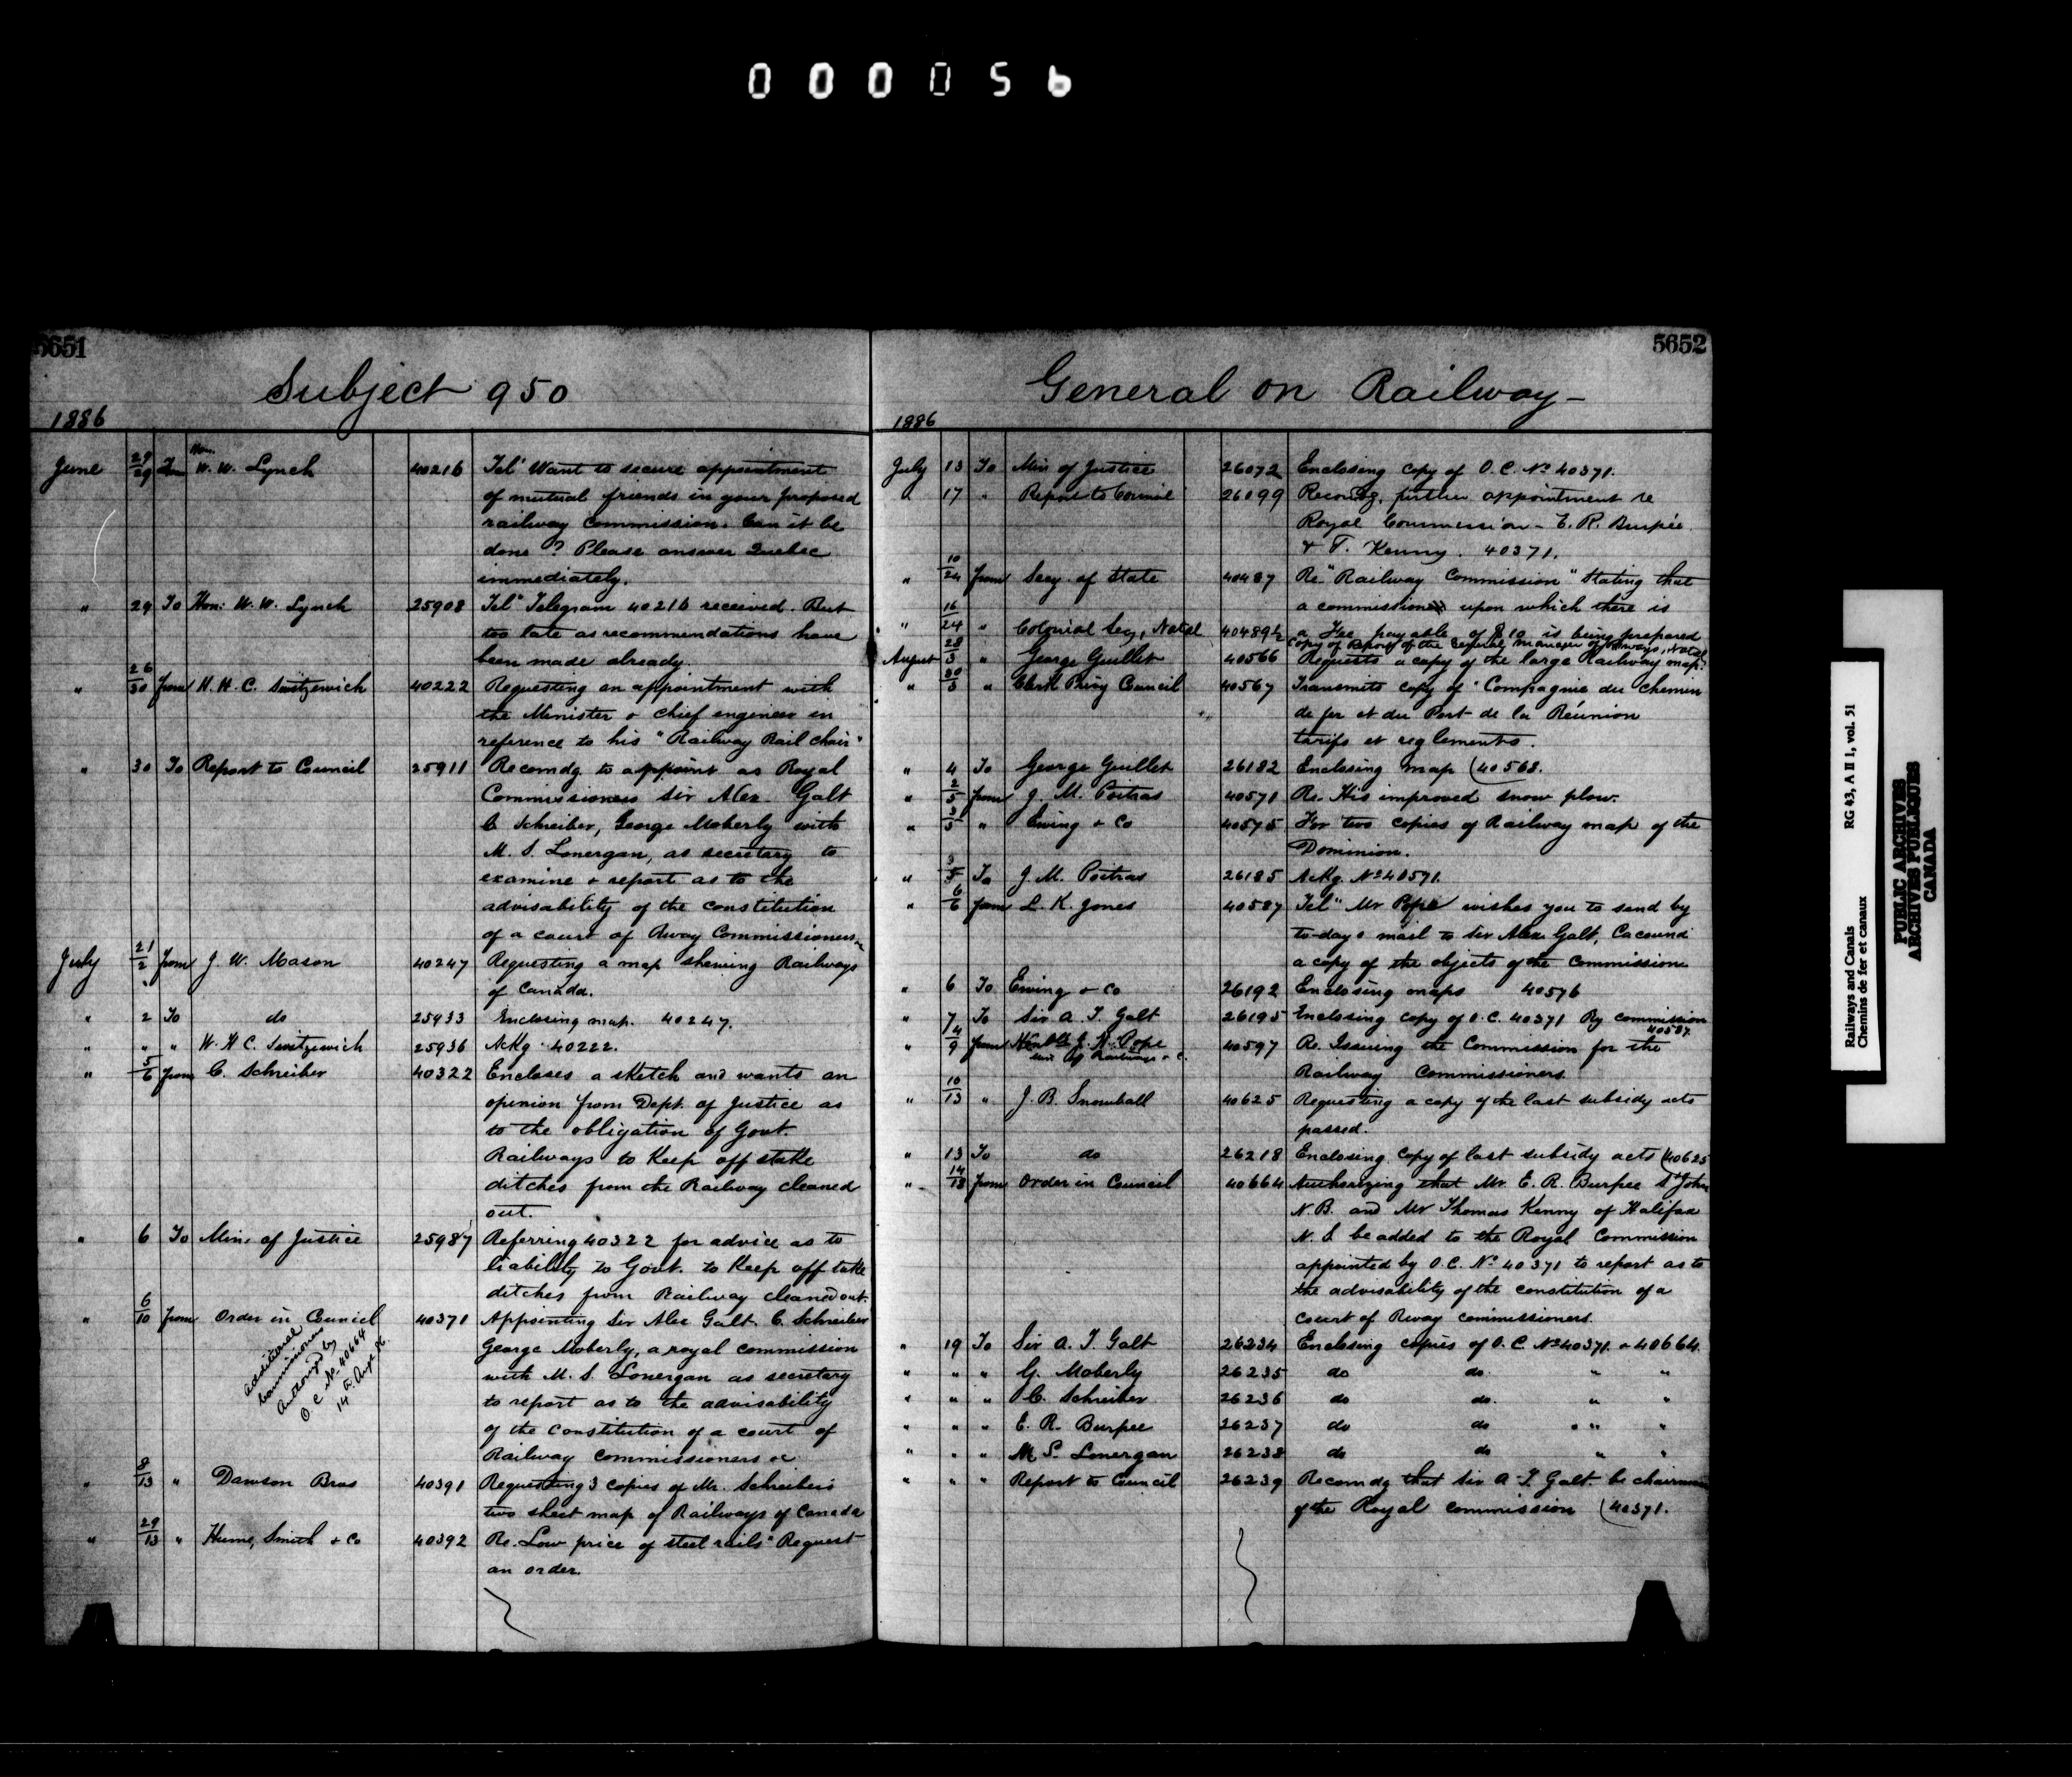 000056
5651
Subject 950
1886
June 29/29 From Hon. W. W. Lynch 40216 Tel" Want to secure appointment
of mutual friends in your proposed
railway commission. Can it be
done? Please answer Quebec
immediately.
" 29 To Hon: W. W. Lynch 25908 Tel" Telegram 40216 received. But
too late as recommendations have
been made already.
" 26/30 from W. H. C. Switzewich 40222 Requesting an appointment with
the Minister & chief engineer in
reference to his "Railway Rail Chair"
" 30 To Report to Council 25911 Recomdg to appoint as Royal
Commissioners Sir Alex. Galt
C Schreiber, George Moberly with
M. S. Lonergan, as secretary to
examine & report as to the
advisability of the constitution
of a court of Rway Commissioners
July 21/2 from J. W. Mason 40247 Requesting a map shewing Railways
of Canada.
" 2 To do 25933 Enclosing map. 40247.
" " " W. H C. Switzewich 25936 Ackg. 40222.
" 5/6 from C. Schreiber 40322 Encloses a sketch and wants an
opinion from Dept. of Justice as
to the obligation of Govt.
Railways to keep off stake
ditches from the Railway cleaned
out.
" 6 To Min. of Justice 25987 Referring 40322 for advice as to
liability to Govt. to keep off take
ditches from Railway cleaned out.
" 6/10 from Order in Council 40371 Appointing Sir Alex Galt. C. Schreiber
George Moberly, a royal commission
with M. S. Lonergan as secretary
to report as to the advisability
of the constitution of a court of
Railway commissioners &c
additional
Commissioners
Authorized by
O. C No 40664
14th Augt 86.
" 8/13 " Dawson Bros 40391 Requesting 3 copies of Mr. Schreibers
two sheet map of Railways of Canada
" 29/13 " Hume, Smith & Co 40392 Re. Low price of steel rails" Request
an order.
5652
General on Railway -
1886
July 13 To Min of Justice 26072 Enclosing copy of O. C. No 40371.
" 17 " Report to Council 26099 Recomdg. further appointment re
Royal Commission - E. R. Burpée
& T. Kenny. 40371.
" 10/24 from Secy. of State 40487 Re. "Railway Commission" Stating that
a commission upon which there is
a Fee payable of $10 is being prepared
" 16/24 " Colonial Secy, Natal 40489½ Copy of Report of the General Manager of Railways, Natal
August 28/3 " George Guillet 40566 Requests a copy of the large Railway map.
" 30/3 " Clerk Privy Council 40567 Transmits copy of "Compagnie du Chemin
de fer et du Port de la Réunion
tarifs et reglements.
" 4 To George Guillet 26182 Enclosing map (40568.
" 2/5 from J. M. Poitras 40571 Re. His improved snow plow.
" 3/5 " Ewing & Co 40575 For two copies of Railway map of the
Dominion.
" 5 To J. M. Poitras 26185 Ackg. No 40571.
" 6/6 from L. K. Jones 40587 Tel" Mr Pope wishes you to send by
to-days mail to Sir Alex Galt, Cacouna
a copy of the objects of the Commission
" 6 To Ewing & Co 26192 Enclosing maps 40576
" 7 To Sir A. T. Galt 26195 Enclosing copy of O. C. 40371 Ry commission
40587.
" 4/9 from Hon'ble J. H. Pope 40597 Re. Issuing the Commission for the
Min of Railways & C.
Railway Commissioners.
" 10/13 " J. B. Snowball 40625 Requesting a copy of the last subsidy acts
passed.
" 13 To do 26218 Enclosing copy of last subsidy acts (40625
" 14/18 from Order in Council 40664 Authorizing that Mr. E. R. Burpee St John
N. B. and Mr Thomas Kenny of Halifax
N. S be added to the Royal Commission
appointed by O. C. No 40371 to report as to
the advisability of the constitution of a
court of Rway commissioners.
" 19 To Sir A. T. Galt 26234 Enclosing copies of O. C. No 40371. & 40664.
" " " G. Moberly 26235 do do. " "
" " " C. Schreiber 26236 do do. " "
" " " E. R. Burpee 26237 do do " " "
" " " M. S. Lonergan 26238 do do " "
" " " Report to Council 26239 Recomdg that Sir A. T. Galt be chairman
of the Royal commission (40371.
Railways and Canals RG 43, A II 1, vol. 51
Chemins de fer et canaux
PUBLIC ARCHIVES
ARCHIVES PUBLIQUES
CANADA